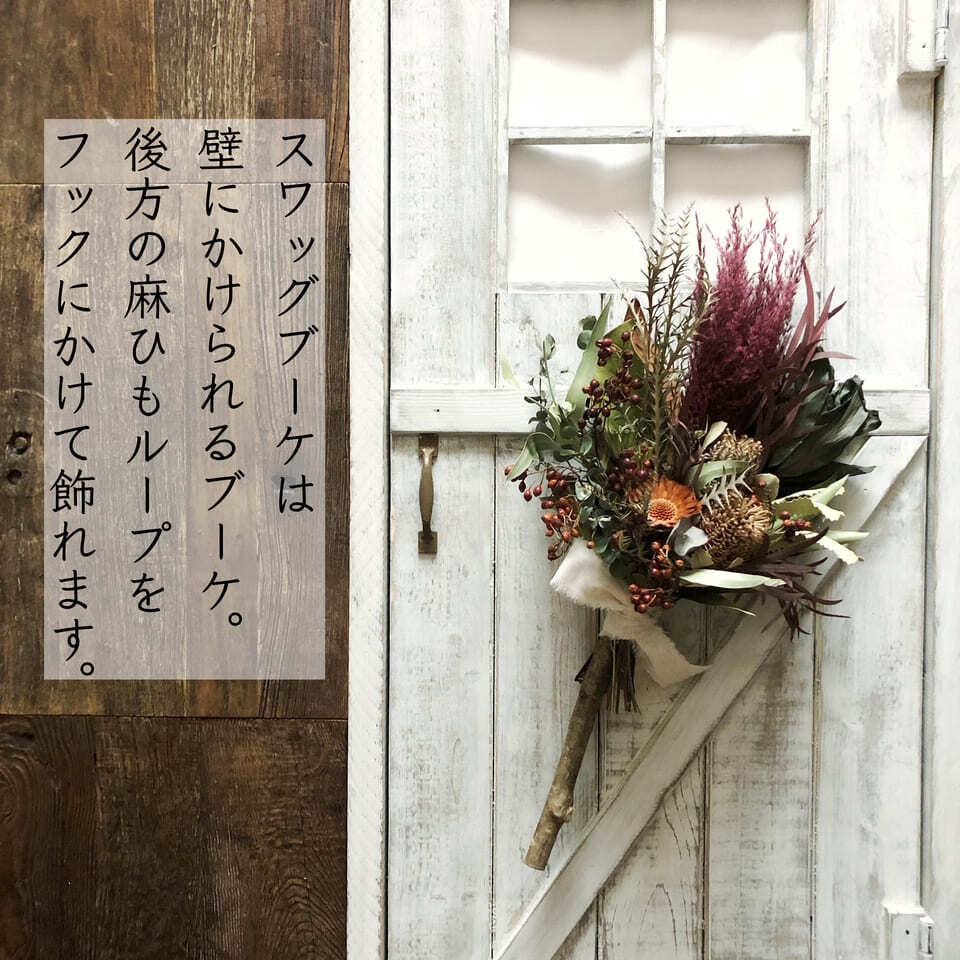 スワッグブーケは
壁にかけられるブーケ。
後方の麻ひもループを
フックにかけて飾れます。